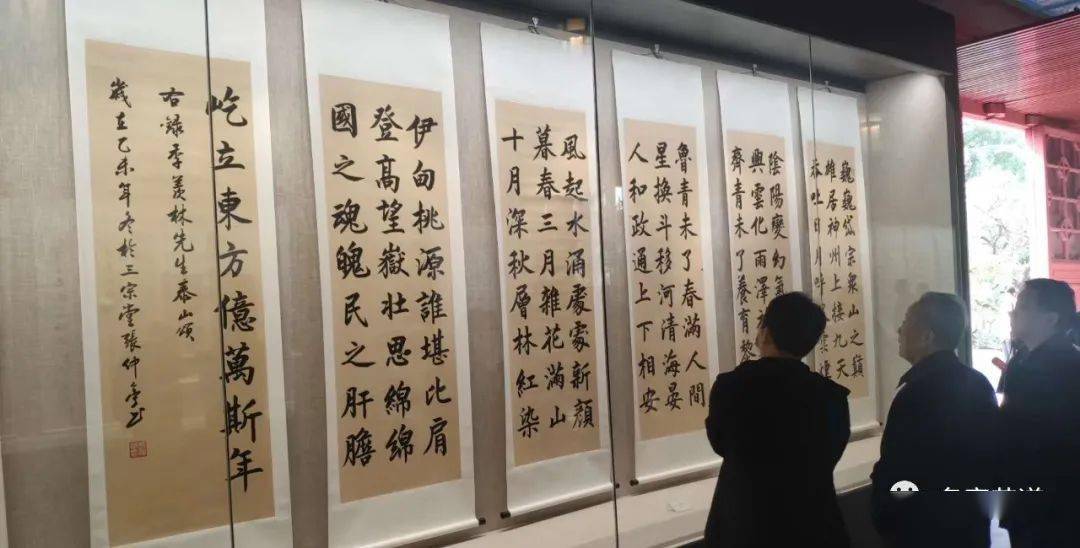 巍巍岱宗衆山之巔
雄居神州上接九天
吞吐日月呼雲煙
陰陽變幻氣
興雲化雨澤
齊青未了養育黎
魯青未了春滿人間
星換斗移河清海晏
人和政通上下相安
風起水涌處處新顏
暮春三月雜花滿山
十月深秋層林紅染
伊甸桃源誰堪比肩
登高望嶽壯思綿綿
國之魂魄民之肝膽
屹立東方億萬斯年
右錄季羨林先生泰山頌
歲在乙未年冬於三宗堂張仲亭書